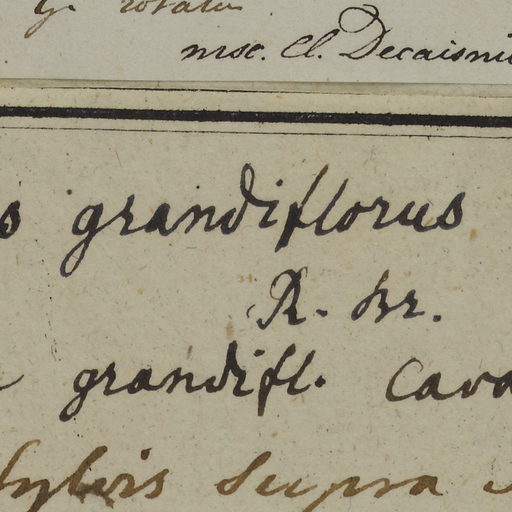 rotata
msc. Cl. Decaisni
s grandiflorus
R. Br.
grandifl. Cava
sylvis supra